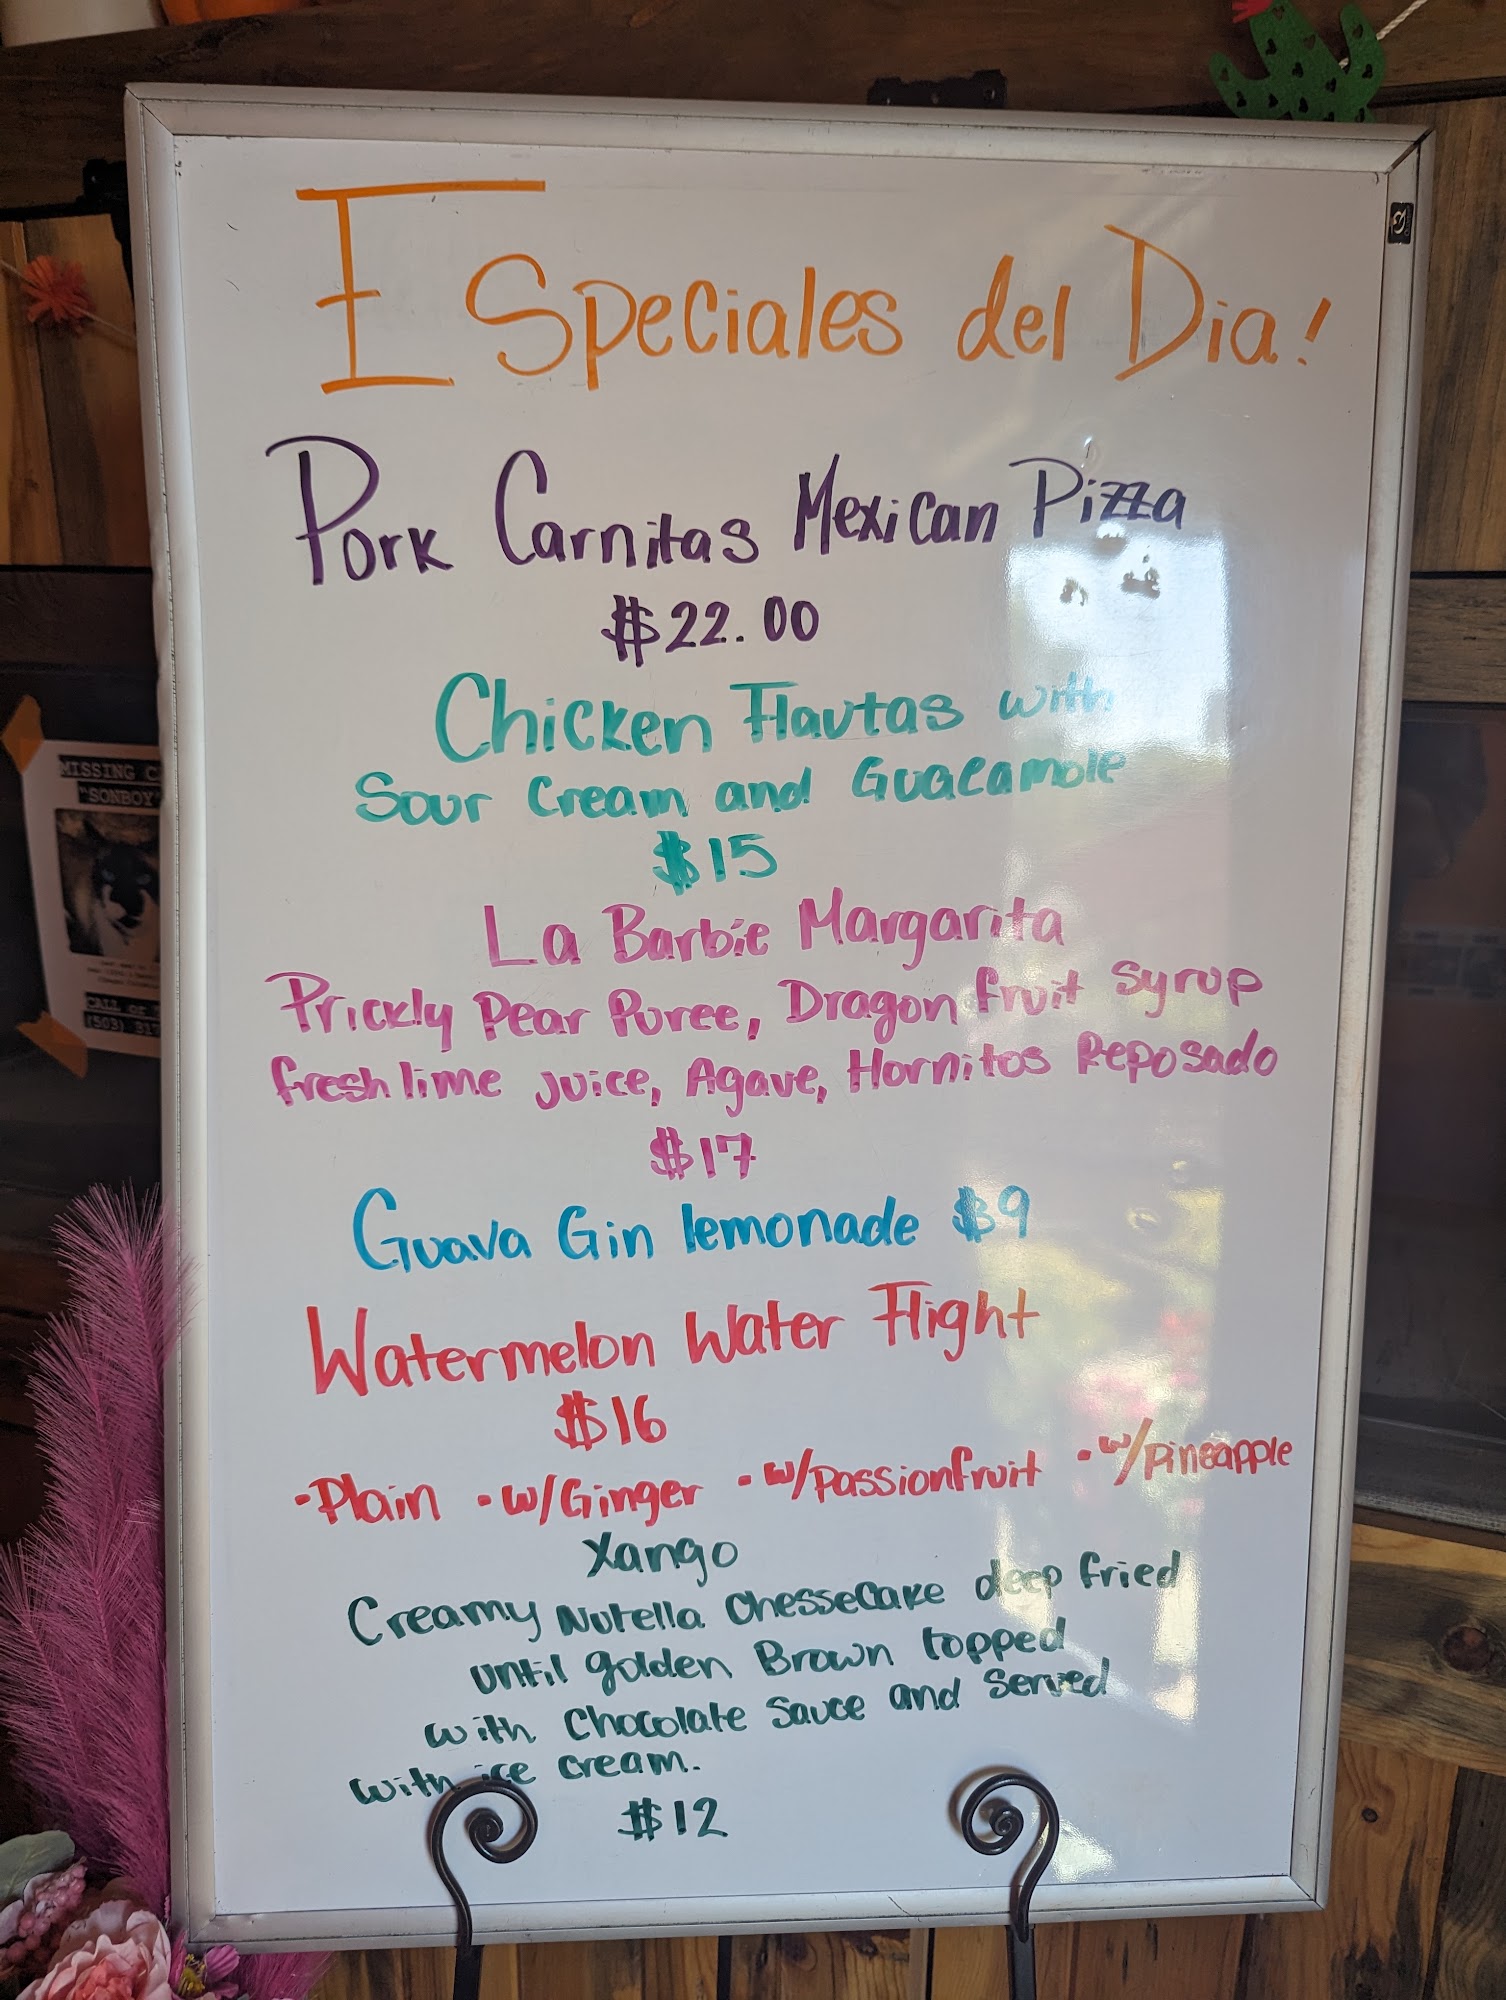 Especiales del Dia!
Pork Carnitas Mexican Pizza
$22.00
Chicken Flautas with
Sour Cream and Guacamole
$15
La Barbie Margarita
Prickly Pear Puree, Dragon fruit Syrup
fresh lime juice, Agave, Hornitos Reposado
$17
Guava Gin lemonade $9
Watermelon Water Flight
$16
•Plain •w/Ginger •w/passionfruit •w/pineapple
Xango
Creamy Nutella Chessecake deep fried
until golden Brown topped
with Chocolate Sauce and Served
with ice cream.
$12
MISSING
"SONBOY"
CALL
(503) 317